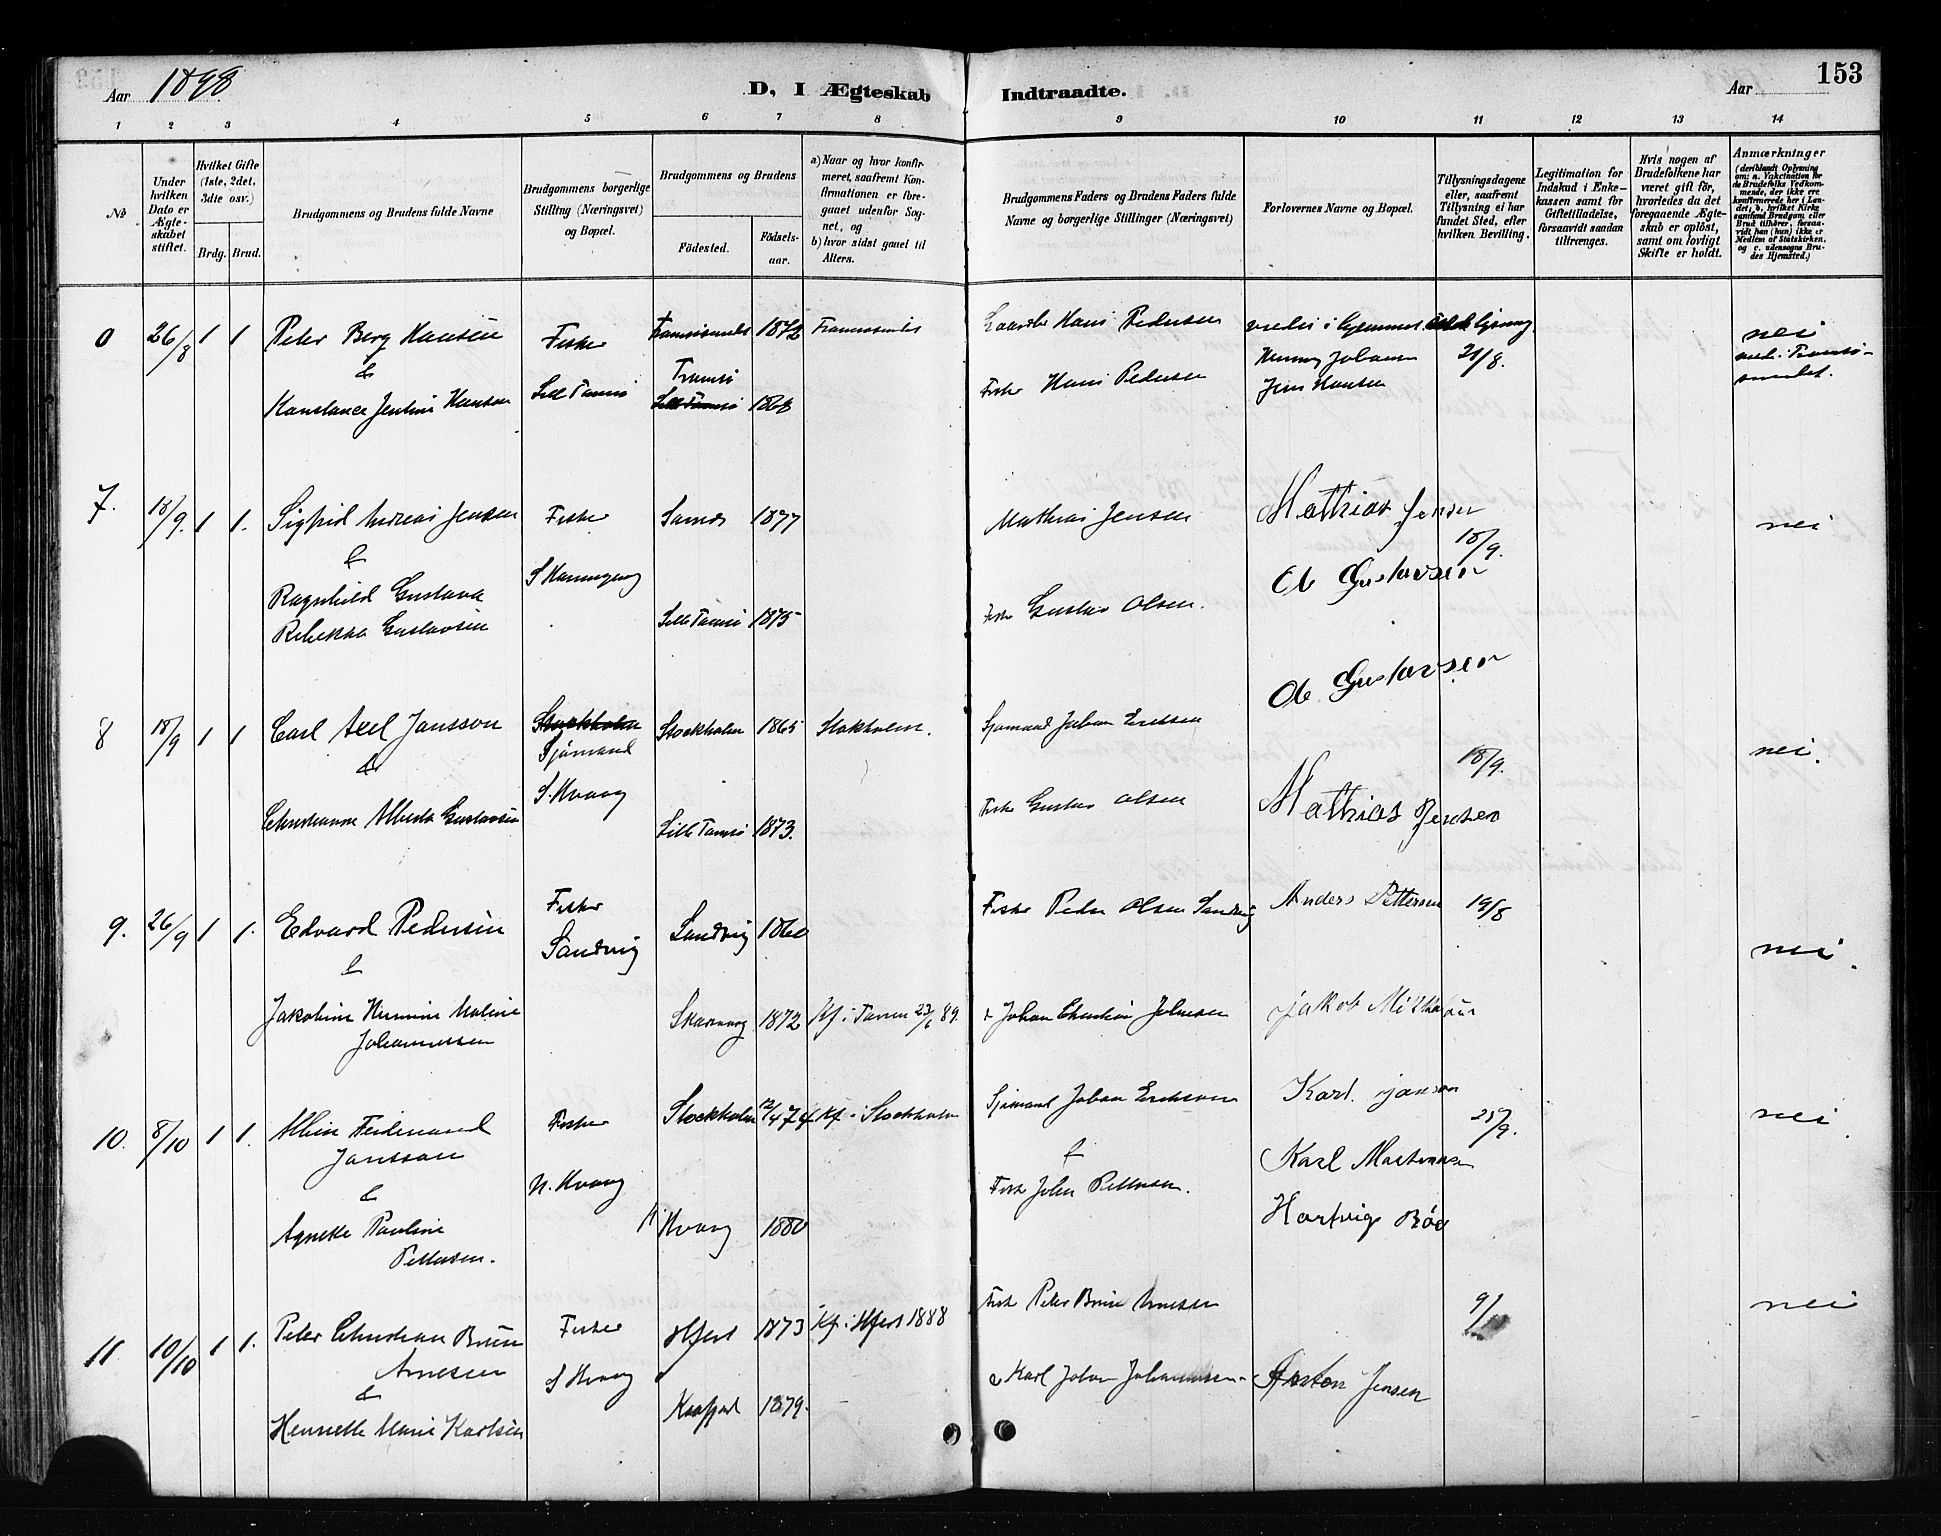 153
Aar 1898
D, I Ægteskab Indtraadte.
Aar
1 2 3 4 5 6 7 8 9 10 11 12 13 14
No
Under hvilken Dato er Ægteskabet stiftet.
Hvilket Gifte (1ste, 2det, 3die osv.)
Brdg. Brud.
Brudgommens og Brudens fulde Navne
Brudgommens borgerlige Stilling (Næringsvei) og Bopæl.
Brudgommens og Brudens
Fødested. Fødselsaar.
a) Naar og hvor konfirmeret, saafremt Konfirmationen er foregaaet udenfor Sognet, og
b) hvor sidst gaaet til Alters.
Brudgommens Faders og Brudens Faders fulde Navne og borgerlige Stillinger (Næringsvei)
Forlovernes Navne og Bopæl.
Tillysningsdagene eller, saafremt Tillysning ei har fundet Sted, efter hvilken Bevilling.
Legitimation for Indskud i Enkekassen samt for Giftetilladelse, forsaavidt saadan tiltrænges.
Hvis nogen af Brudefolkene har været gift før, hvorledes da det foregaaende Ægteskab er opløst, samt om lovligt Skifte er holdt.
Anmærkninger
(deriblandt Oplysning om: a. Vakcination for de Brudefolks Vedkommende, der ikke ere konfirmerede her i Landet; b. hvilket Kirkesamfund Brudgom eller Brud tilhører, forsaavidt han (hun) ikke er Medlem af Statskirken, og c. udensogns Brudes Hjemsted.)
26/8 1 1 Peter Berg Hansen Fisker Tromsösundet 1872 Tromsösundet Hans Pedersen nei
&
Konstance Jentine Hansen Lille Tamsö Tromsö 1868 Fisker Hans Pedersen Jens Hansen 21/8.
7. 18/9. 1 1. Sigfrid Andreas Jensen Fisker 1877 Mathias Jensen Mathias Jensen 18/9. nei
&
Ragnhild Gustava
Rebekka Gustavsen Lille Tamsö 1875 Fisker Gustav Olsen. Ole Gustavsen
8 18/9 1 1 Carl Axel Jansson Stockholm Stockholm 1865 Stokholm. Sjømand Johan Ericsen Ole Gustavsen nei.
& Sjømand 18/9.
S. Kvæng
Alberta Gustavsen Lille Tamsö 1873. Fisker Gustav Olsen Mathias Jensen
9. 26/9 1 1. Edvard Pedersen Fisker Sandvig 1860 Fisker Peder Olsen Sandvig Anders Pettersen 19/8 nei.
& Sandvig
Jakobine Hermine Maline
Johannessen 1872 Kf. i 23/6 89. Johan Christian Johnsen Jakob
10. 8/10 1 1. Albin Ferdinand
Jansson Fisker Stockholm 12/4 74 Kf. i Stockholm Sjømand Johan Ericksen Karl Janson 25/9. nei.
& N. Kvæng & Karl Mortensen
Agnethe Pauline
Pettersen. Kvæng 1880 Fisk John Pettersen. Hartvig Böe
11 10/10 1 1. Peter Christian Bruun
Arnesen Fisker 1873 Kf. i 1888 Fisk Peter Bruun Arnesen 9/ nei
& S Kvæng
Henrette Marie Karlsen 1879. Karl Johan Johannessen Anton Jensen